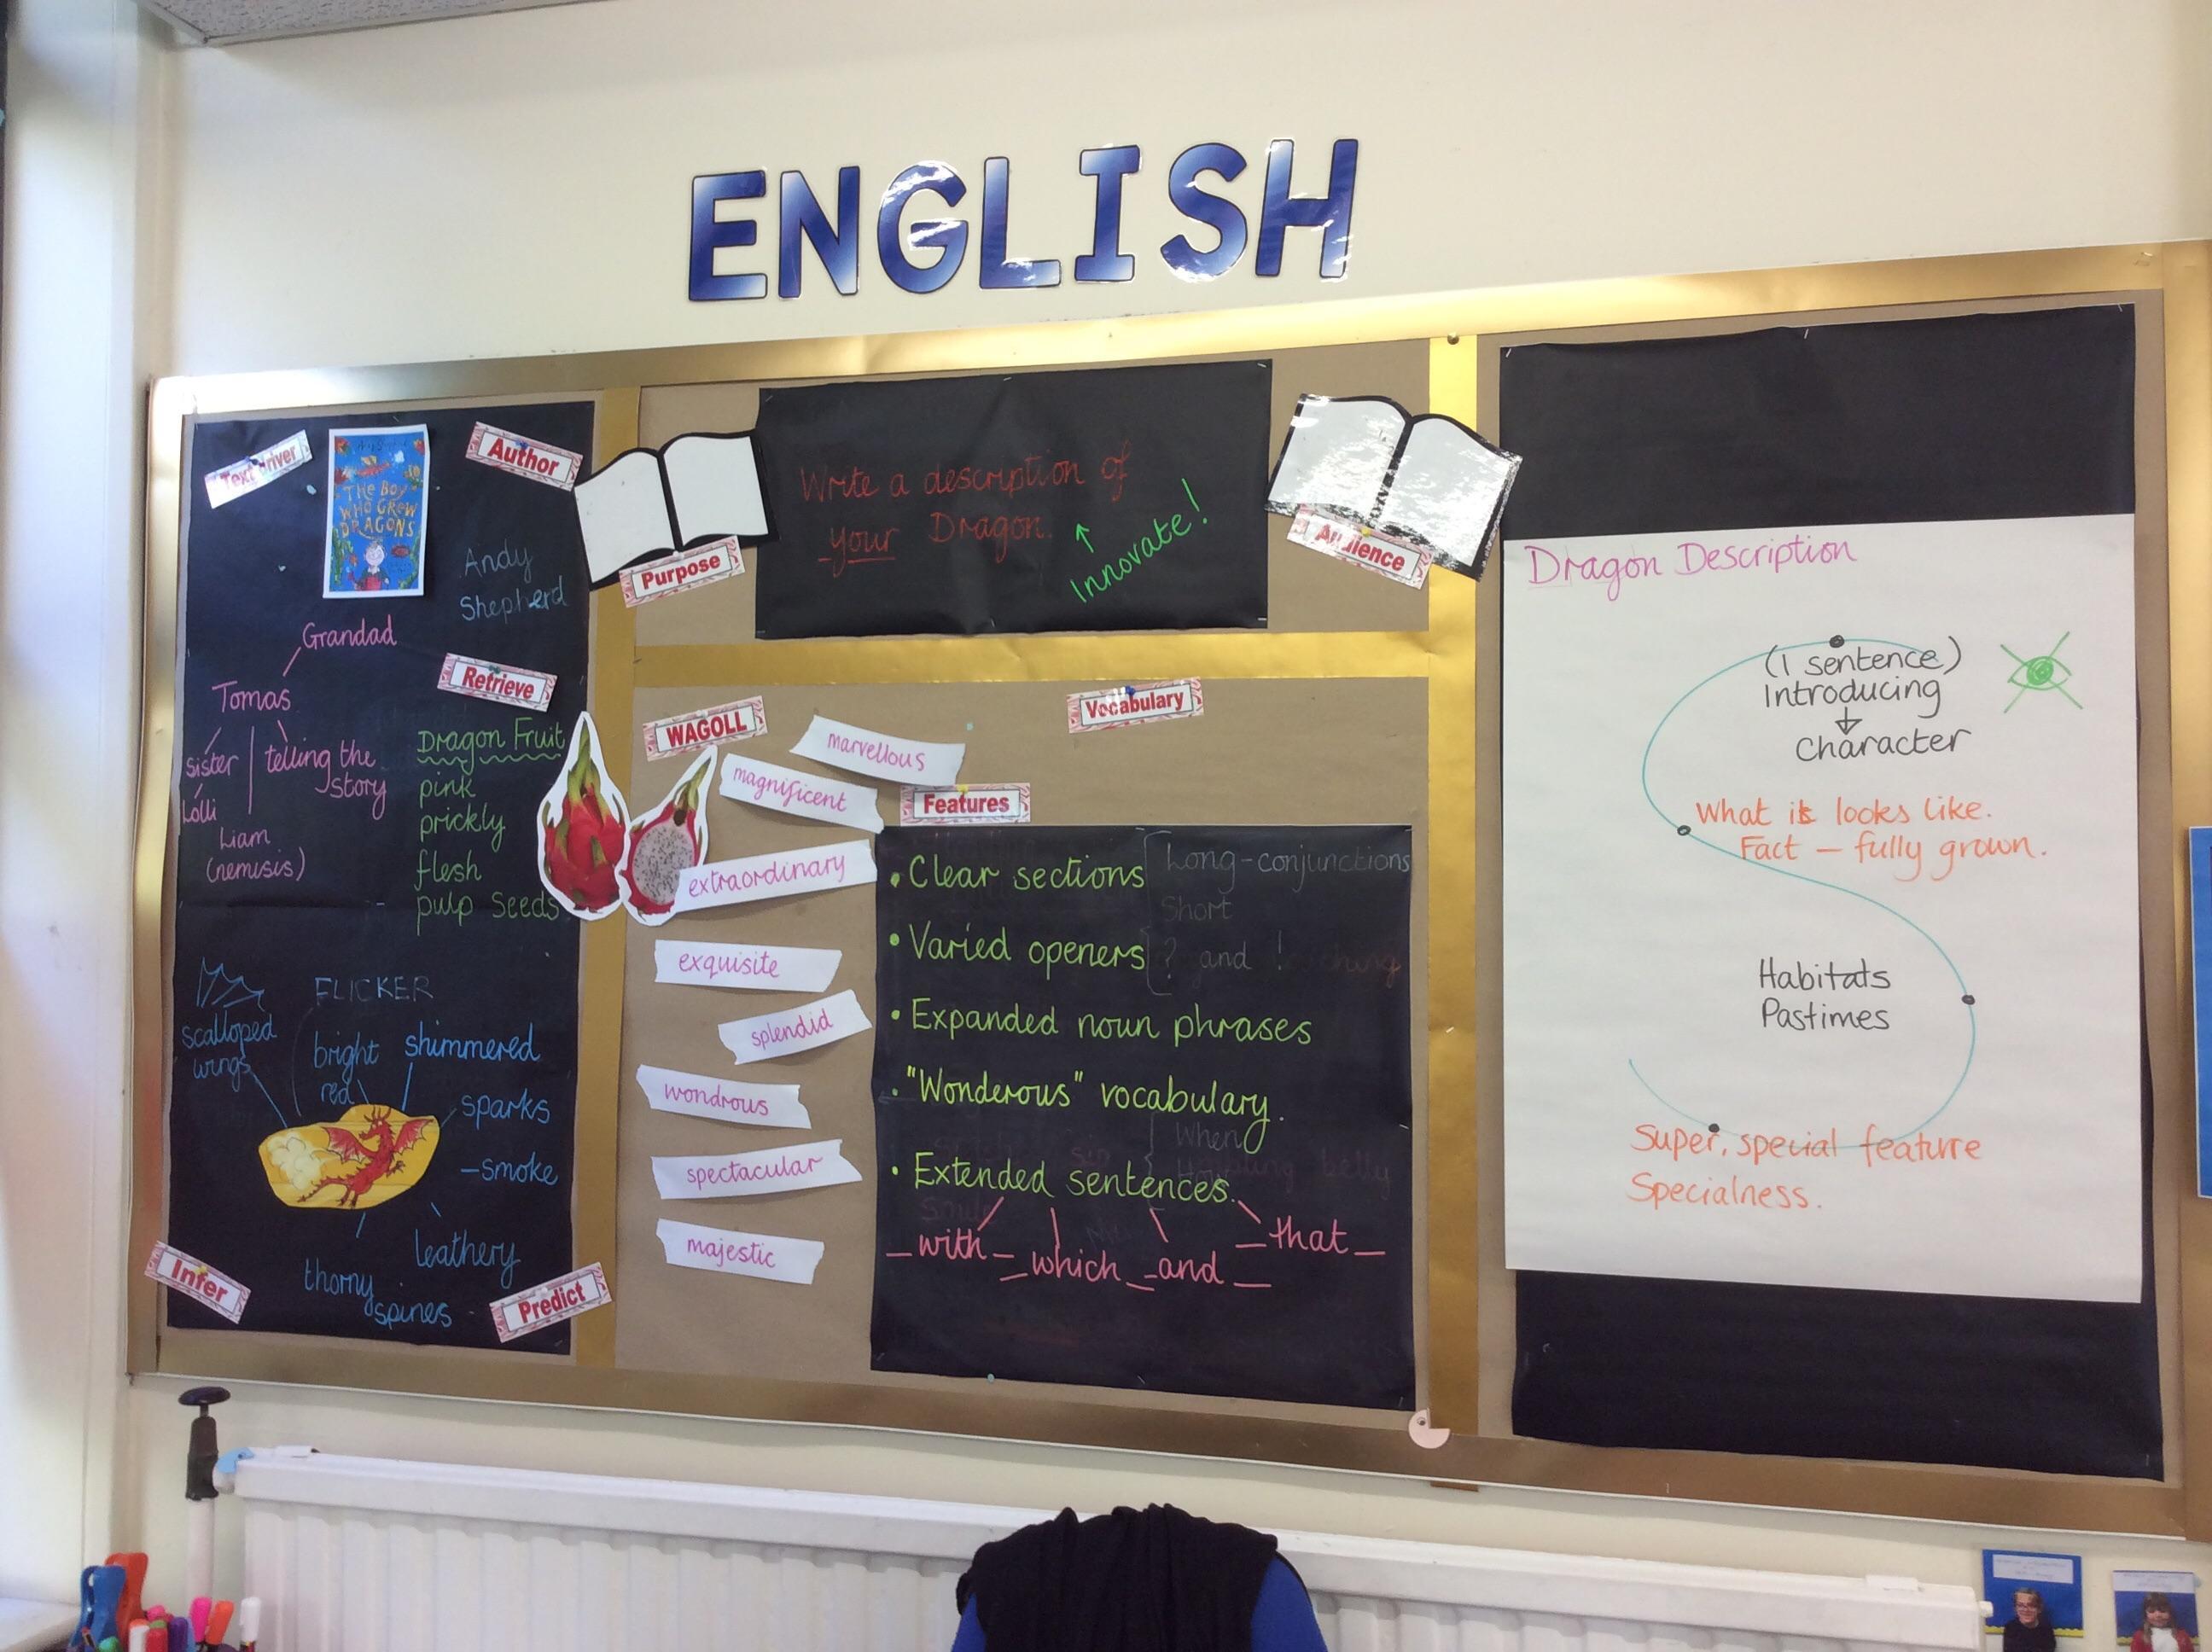 ENGLISH
Text driver
THE BOY
WHO GREW
DRAGONS
Author
Andy
Shepherd
Grandad
Tomas
sister
Lolli
telling the
story
Liam
(nemisis)
Retrieve
Dragon Fruit
pink
prickly
flesh
pulp Seeds
FLICKER
scalloped
wings
bright
red
shimmered
sparks
-smoke
leathery
thorny
spines
Infer
Predict
Purpose
Write a description of
your Dragon.
Innovate!
Audience
WAGOLL
Vocabulary
marvellous
magnificent
extraordinary
exquisite
splendid
wondrous
spectacular
majestic
Features
• Clear sections
Long-conjunctions
Short
• Varied openers
? and !
• Expanded noun phrases
• "Wonderous" vocabulary.
When
• Extended sentences.
_with_
_which_
_and_
_that_
Dragon Description
(1 sentence)
Introducing
character
What it looks like.
Fact - fully grown.
Habitats
Pastimes
Super, special feature
Specialness.